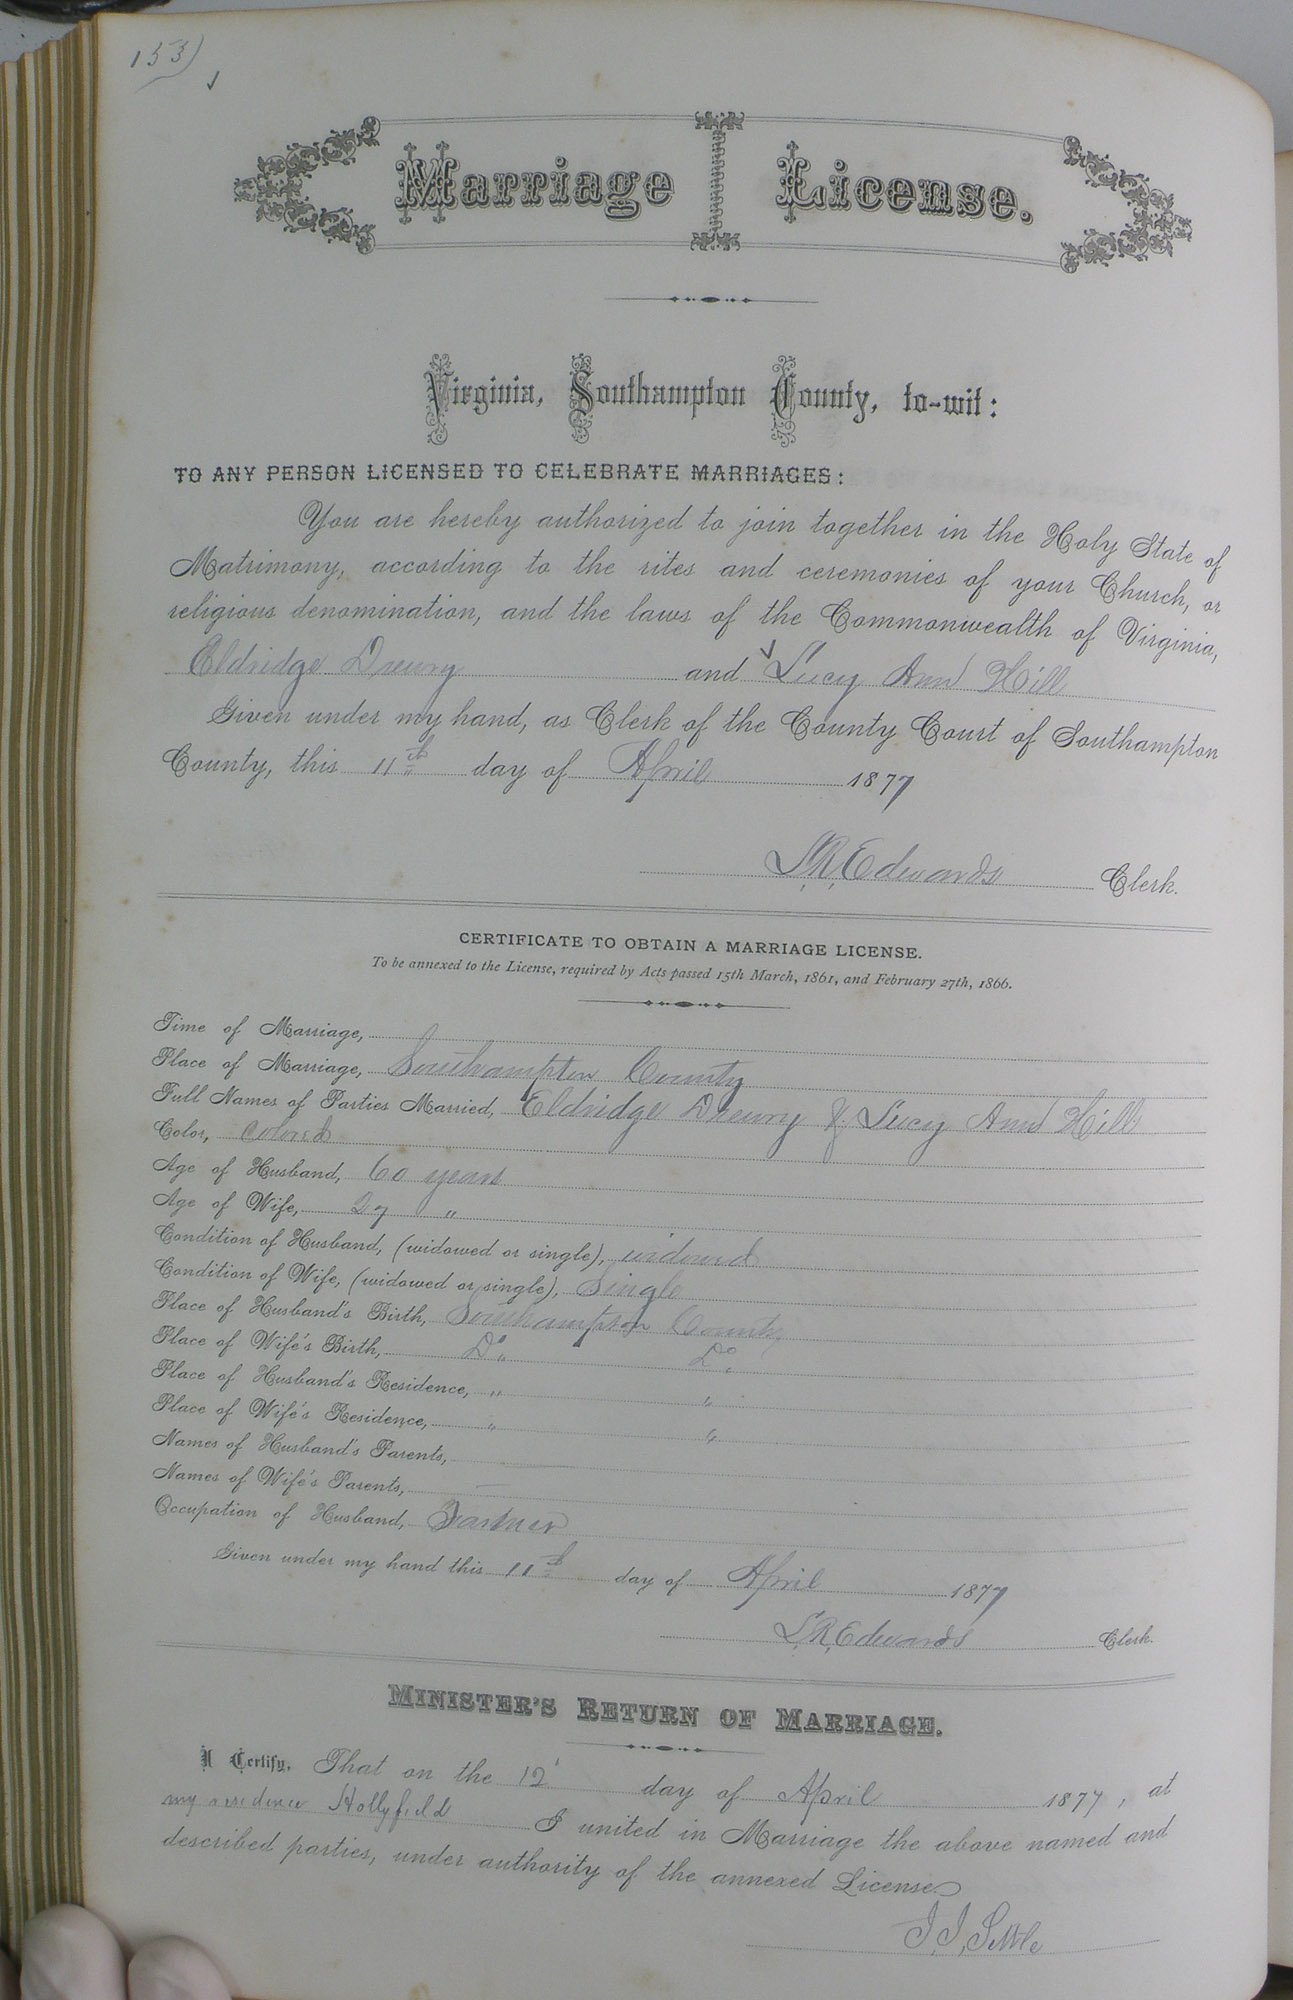 153)
Marriage License.
Virginia, Southampton County, to-wit:
TO ANY PERSON LICENSED TO CELEBRATE MARRIAGES:
You are hereby authorized to join together in the Holy State of
Matrimony, according to the rites and ceremonies of your Church, or
religious denomination, and the laws of the Commonwealth of Virginia,
Eldridge Drewry and Lucy Ann Hill
Given under my hand, as Clerk of the County Court of Southampton
County, this 11th day of April 1877
L.R. Edwards Clerk.
CERTIFICATE TO OBTAIN A MARRIAGE LICENSE.
To be annexed to the License, required by Acts passed 15th March, 1861, and February 27th, 1866.
Time of Marriage,
Place of Marriage, Southampton County
Full Names of Parties Married, Eldridge Drewry & Lucy Ann Hill
Color, Colored
Age of Husband, 60 years
Age of Wife, 27 "
Condition of Husband, (widowed or single), widowed
Condition of Wife, (widowed or single), Single
Place of Husband's Birth, Southampton County
Place of Wife's Birth, Do. Do.
Place of Husband's Residence, " "
Place of Wife's Residence, " "
Names of Husband's Parents,
Names of Wife's Parents,
Occupation of Husband, Farmer
Given under my hand this 11th day of April 1877
L.R. Edwards Clerk.
MINISTER'S RETURN OF MARRIAGE.
I Certify, That on the 12 day of April 1877, at
my residence Hollyfield I united in Marriage the above named and
described parties, under authority of the annexed License
J.J. Settle